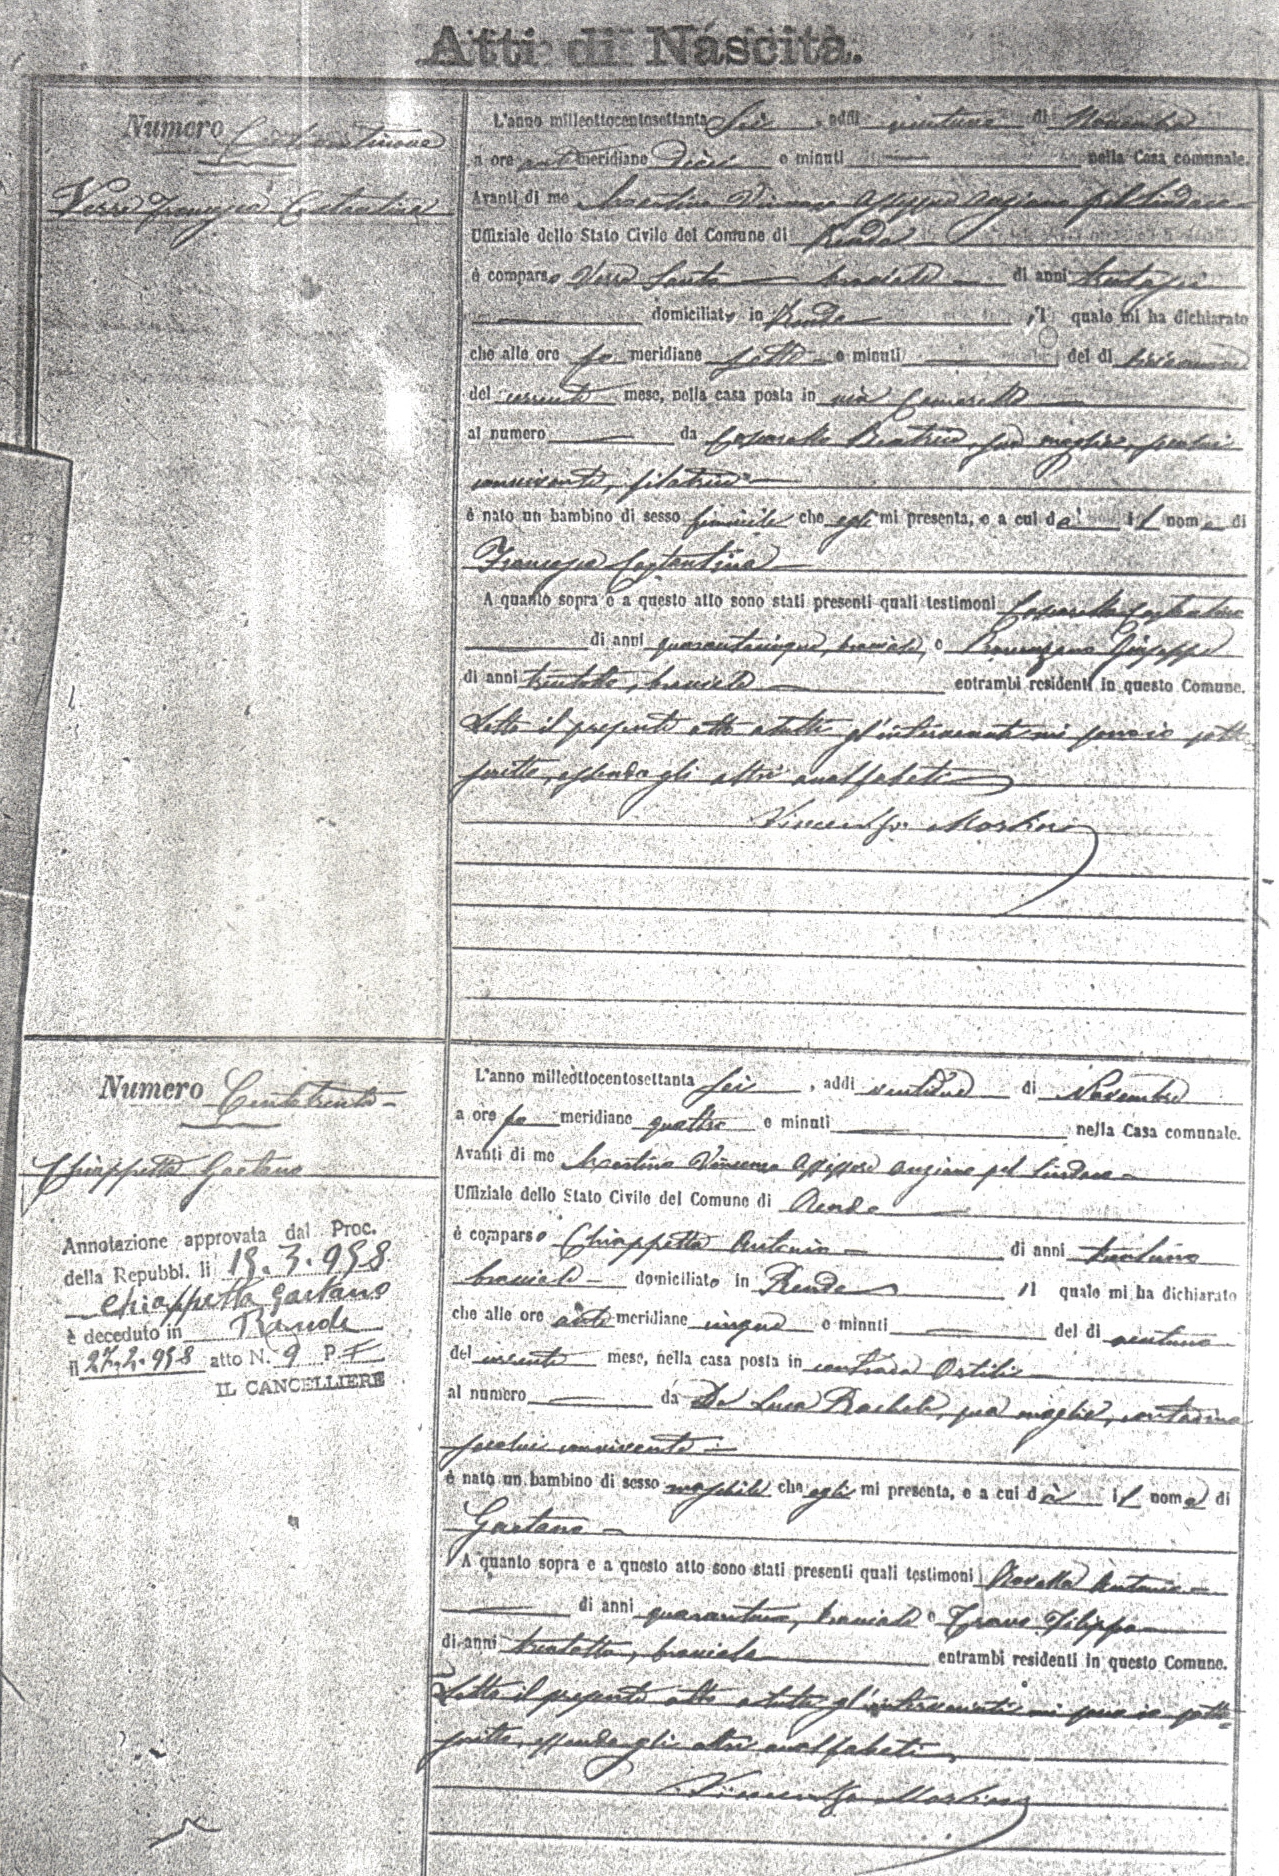 Atti di Nascita.
Numero Centoventinove
Verre Francesca Costantina
L'anno milleottocentosettanta sei, addi ventuno di Novembre
a ore antimeridiane dieci e minuti nella Casa comunale.
Avanti di me Martino Vincenzo Assessore Anziano pel Sindaco
Uffiziale dello Stato Civile del Comune di Rende
è comparso Verre Santo bracciale di anni trentasei
domiciliato in Rende, il quale mi ha dichiarato
che alle ore po meridiane sette e minuti del di
del corrente mese, nella casa posta in via
al numero da Gasparello Beatrice, sua moglie, seco lui
convivente, filatrice
è nato un bambino di sesso feminile che egli mi presenta, e a cui dà il nome di
Francesca Costantina
A quanto sopra e a questo atto sono stati presenti quali testimoni
di anni quarantacinque, bracciale, e Giuseppe
di anni trentotto, bracciale entrambi residenti in questo Comune.
Letto il presente atto a tutti gl'intervenuti mi sono io sotto
scritto, essendo gli altri analfabeti
Vincenzo Martino
Numero Centotrenta
Chiappetta Gaetano
Annotazione approvata dal Proc.
della Repubbl. li 15.3.958
Chiappetta Gaetano
è deceduto in Rende
il 27.2.958 atto N. 9 P. I
IL CANCELLIERE
L'anno milleottocentosettanta sei, addi ventidue di Novembre
a ore po meridiane quattro e minuti nella Casa comunale.
Avanti di me Martino Vincenzo Assessore anziano pel Sindaco
Uffiziale dello Stato Civile del Comune di Rende
è comparso Chiappetta Antonio di anni trentuno
bracciale domiciliato in Rende, il quale mi ha dichiarato
che alle ore antimeridiane cinque e minuti del di ventuno
del corrente mese, nella casa posta in contrada Ortili
al numero da De Luca Rachele, sua moglie, contadina
seco lui convivente
è nato un bambino di sesso maschile che egli mi presenta, e a cui dà il nome di
Gaetano
A quanto sopra e a questo atto sono stati presenti quali testimoni Antonio
di anni quarantuno, bracciale e Filippo
di anni trentotto, bracciale entrambi residenti in questo Comune.
Letto il presente atto a tutti gl'intervenuti mi sono io sotto=
scritto, essendo gli altri analfabeti
Vincenzo Martino